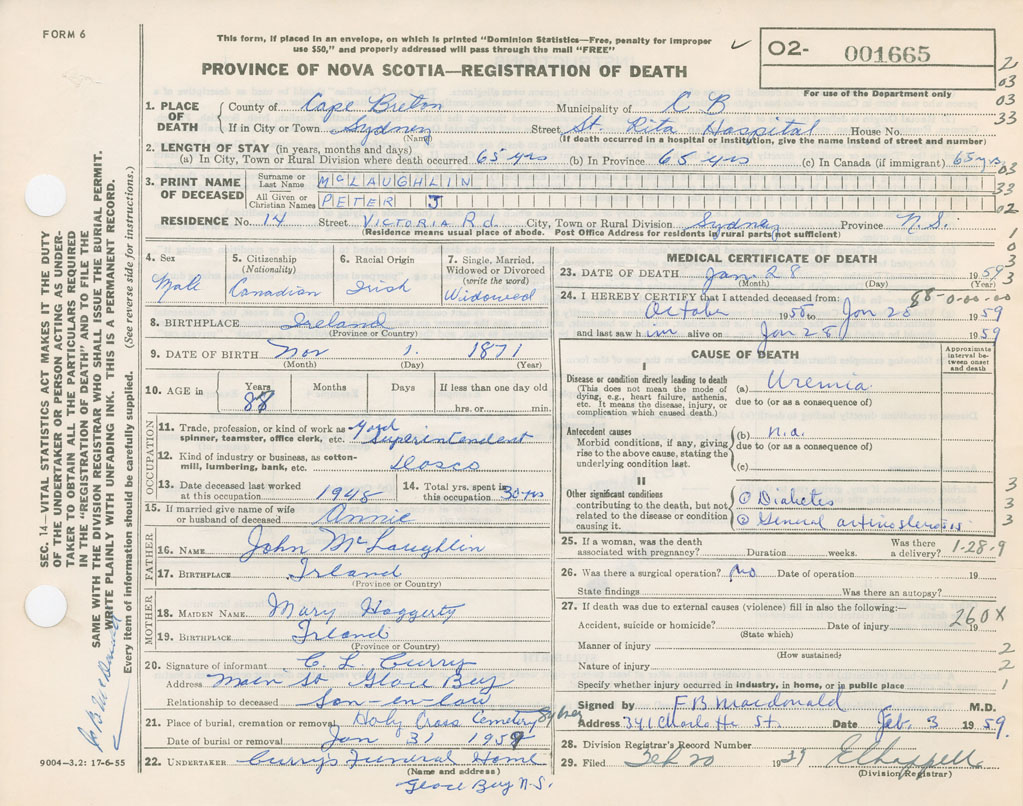 FORM 6
This form, if placed in an envelope, on which is printed "Dominion Statistics—Free, penalty for improper
use $50," and properly addressed will pass through the mail "FREE"
PROVINCE OF NOVA SCOTIA—REGISTRATION OF DEATH
O2- 001665
For use of the Department only
2
03
03
33
1. PLACE OF DEATH County of Cape Breton Municipality of C B
If in City or Town Sydney Street St. Rita Hospital House No.
(Name) (If death occurred in a hospital or institution, give the name instead of street and number)
2. LENGTH OF STAY (in years, months and days)
(a) In City, Town or Rural Division where death occurred 65 yrs (b) In Province 65 yrs (c) In Canada (if immigrant) 65 yrs
03
3. PRINT NAME OF DECEASED
Surname or Last Name McLAUGHLIN
33
All Given or Christian Names PETER J
02
RESIDENCE No. 14 Street VICTORIA Rd. City, Town or Rural Division Sydney Province N.S.
(Residence means usual place of abode. Post Office Address for residents in rural parts not sufficient)
1
0
3
3
4. Sex
Male
5. Citizenship
(Nationality)
Canadian
6. Racial Origin
Irish
7. Single, Married,
Widowed or Divorced
(write the word)
Widowed
8. BIRTHPLACE Ireland
(Province or Country)
9. DATE OF BIRTH Nov 1. 1871
(Month) (Day) (Year)
10. AGE in
Years Months Days If less than one day old
88 hrs. or min.
OCCUPATION
11. Trade, profession, or kind of work as Yard
spinner, teamster, office clerk, etc. Superintendent
12. Kind of industry or business, as cotton-
mill, lumbering, bank, etc. Dosco
13. Date deceased last worked
at this occupation 1948
14. Total yrs. spent in
this occupation 30 yrs
15. If married give name of wife
or husband of deceased Annie
FATHER
16. NAME John McLaughlin
17. BIRTHPLACE Irland
(Province or Country)
MOTHER
18. MAIDEN NAME Mary Haggerty
19. BIRTHPLACE Irland
(Province or Country)
20. Signature of informant C. L. Curry
Address Main St Glace Bay
Relationship to deceased Son-in-law
21. Place of burial, cremation or removal Holy Cross Cemetery Sydney
Date of burial or removal Jan 31 1959
22. UNDERTAKER Curry's Funeral Home
(Name and address)
Glace Bay N.S.
MEDICAL CERTIFICATE OF DEATH
23. DATE OF DEATH Jan 28 1959
(Month) (Day) (Year)
88-0-00-00
24. I HEREBY CERTIFY that I attended deceased from:
October 1958 to Jan 28 1959
and last saw him alive on Jan 28 1959
CAUSE OF DEATH
Approximate
interval be-
tween onset
and death
I
Disease or condition directly leading to death
(This does not mean the mode of
dying, e.g., heart failure, asthenia,
etc. It means the disease, injury, or
complication which caused death.)
(a) Uremia
due to (or as a consequence of)
Antecedent causes
Morbid conditions, if any, giving
rise to the above cause, stating the
underlying condition last.
(b) n.a.
due to (or as a consequence of)
(c)
II
Other significant conditions
contributing to the death, but not
related to the disease or condition
causing it.
① Diabetes
② General arteriosclerosis
3
3
3
25. If a woman, was the death
associated with pregnancy? Duration weeks. Was there
a delivery?
1-28-9
26. Was there a surgical operation? No Date of operation 19
State findings Was there an autopsy?
27. If death was due to external causes (violence) fill in also the following:—
260X
Accident, suicide or homicide? Date of injury 19
(State which)
Manner of injury 2
(How sustained)
Nature of injury 2
Specify whether injury occurred in industry, in home, or in public place 1
Signed by F B Macdonald M.D.
Address 341 Charlotte St. Date Feb. 3 1959.
28. Division Registrar's Record Number
29. Filed Feb 20 1959 E Chappell
(Division Registrar)
SEC. 14—VITAL STATISTICS ACT MAKES IT THE DUTY
OF THE UNDERTAKER OR PERSON ACTING AS UNDER-
TAKER TO OBTAIN ALL THE PARTICULARS REQUIRED
IN THE "REGISTRATION OF DEATH" AND TO FILE THE
SAME WITH THE DIVISION REGISTRAR WHO SHALL ISSUE THE BURIAL PERMIT.
WRITE PLAINLY WITH UNFADING INK. THIS IS A PERMANENT RECORD.
Every item of information should be carefully supplied. (See reverse side for instructions.)
9004—3.2: 17-6-55